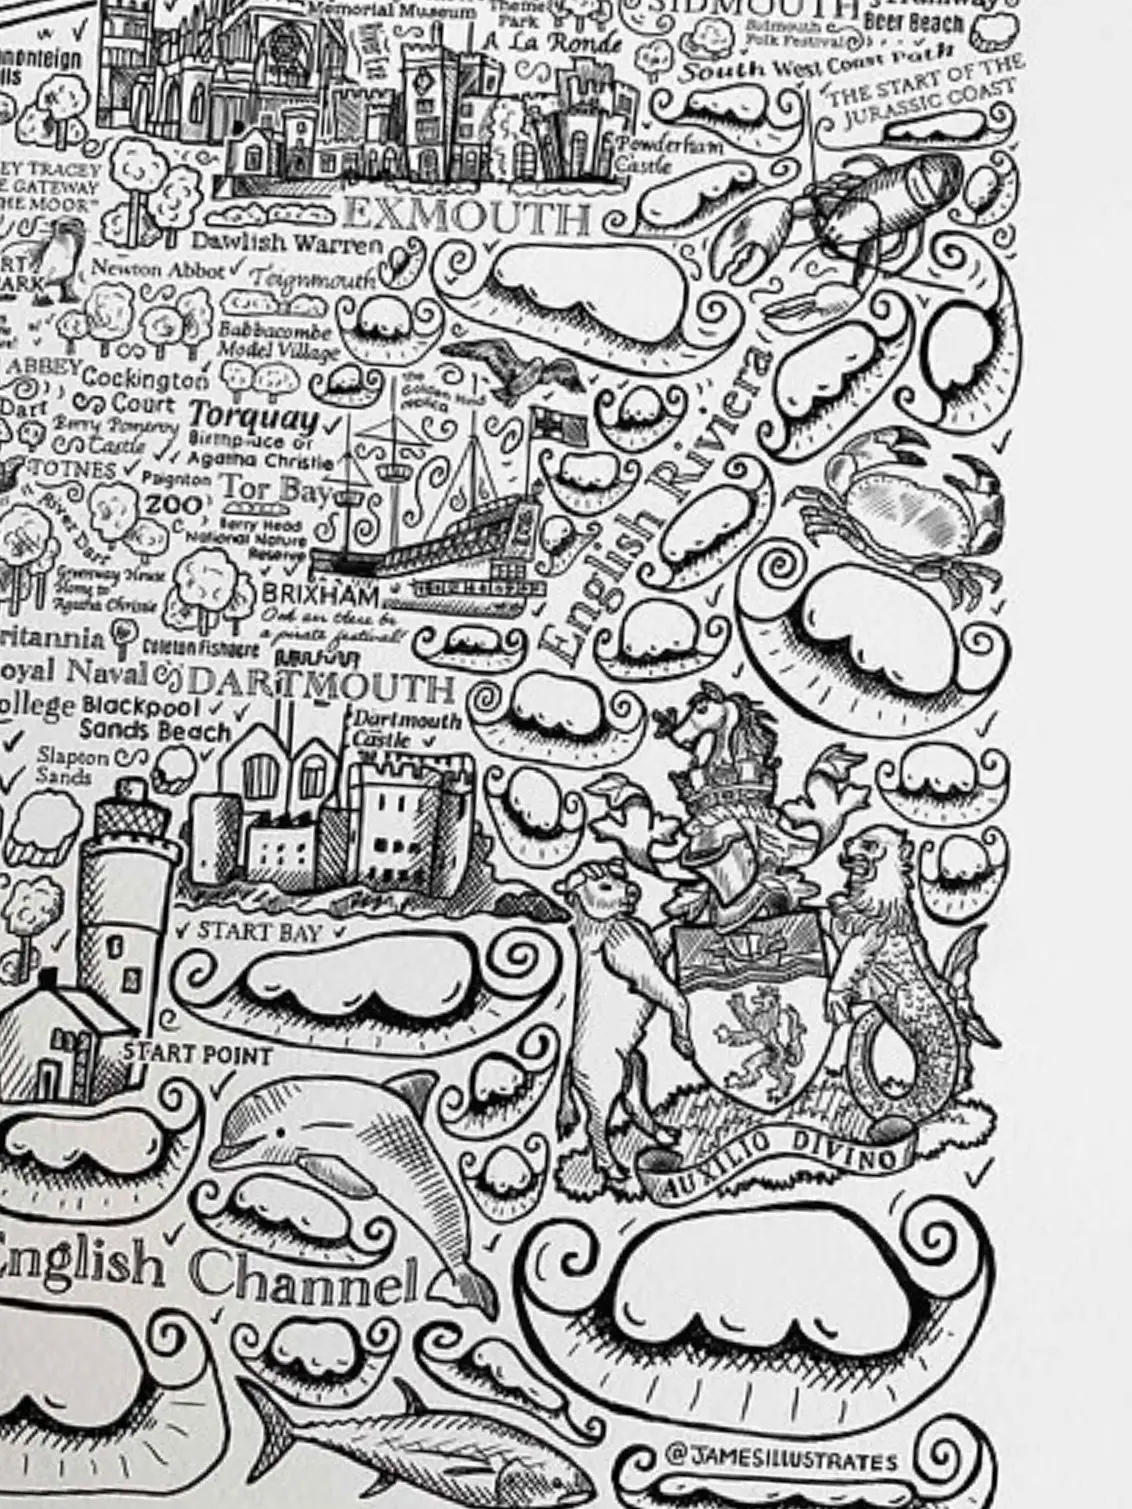 Memorial Museum
Theme
Park
SIDMOUTH
Beer Beach
A La Ronde
Sidmouth
Folk Festival
South West Coast Path
THE START OF THE
JURASSIC COAST
Powderham
Castle
EY TRACEY
E GATEWAY
HE MOOR"
EXMOUTH
Dawlish Warren
Newton Abbot
Teignmouth
ARK
Babbacombe
Model Village
ABBEY
Cockington
Court
The
Golden Hind
Dart
Berry Pomeroy
Castle
Torquay
Birthplace of
Agatha Christie
English Riviera
TOTNES
Paignton
ZOO
Tor Bay
River Dart
Berry Head
National Nature
Reserve
Greenway House
Home to
Agatha Christie
BRIXHAM
a pirate festival!
ritannia
Coleton Fishacre
oyal Naval
DARTMOUTH
ollege
Blackpool
Sands Beach
Dartmouth
Castle
Slapton
Sands
START BAY
START POINT
AUXILIO DIVINO
English Channel
@JAMESILLUSTRATES